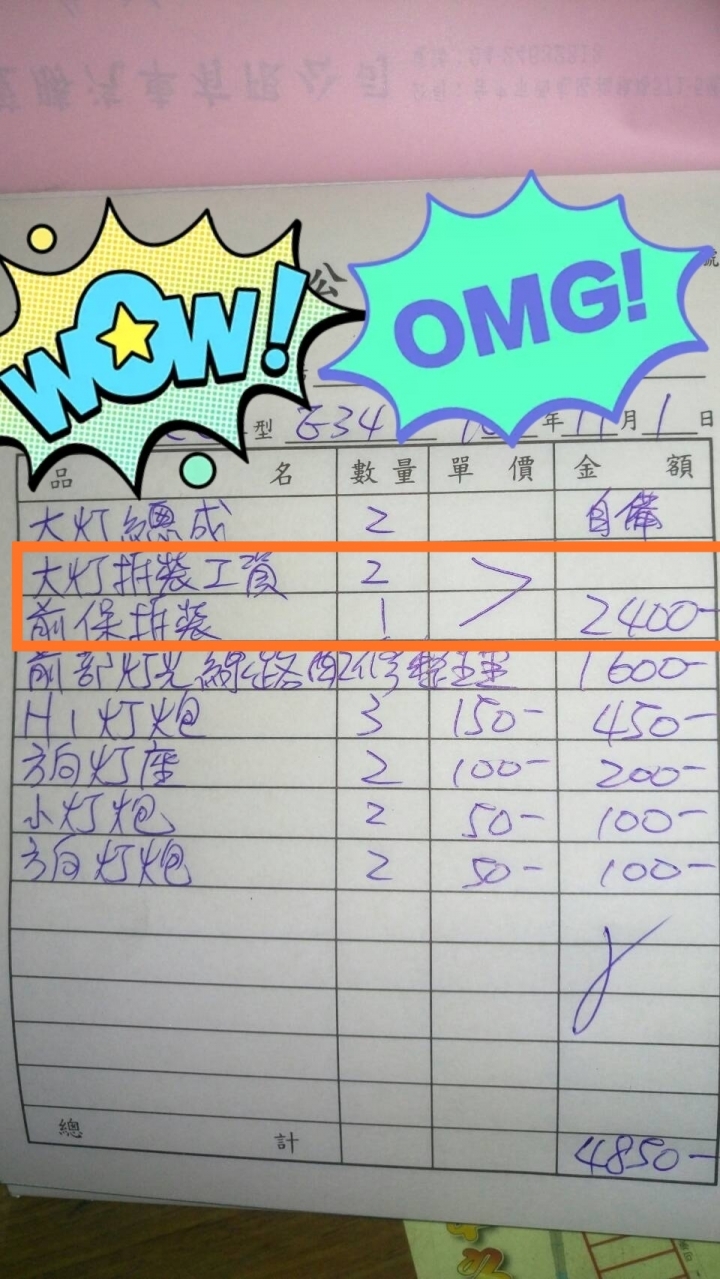 汽車有限公司
WOW!
OMG!
公
號
型 E34 年 11 月 1 日
品 名 數量 單 價 金 額
大灯總成 2 自備
大灯拆裝工資 2
前保拆裝 1 2400-
前部灯光線路配修整理 1600-
H1灯炮 3 150- 450-
方向灯座 2 100- 200-
小灯炮 2 50- 100-
方向灯炮 2 50- 100-
總 計 4850-